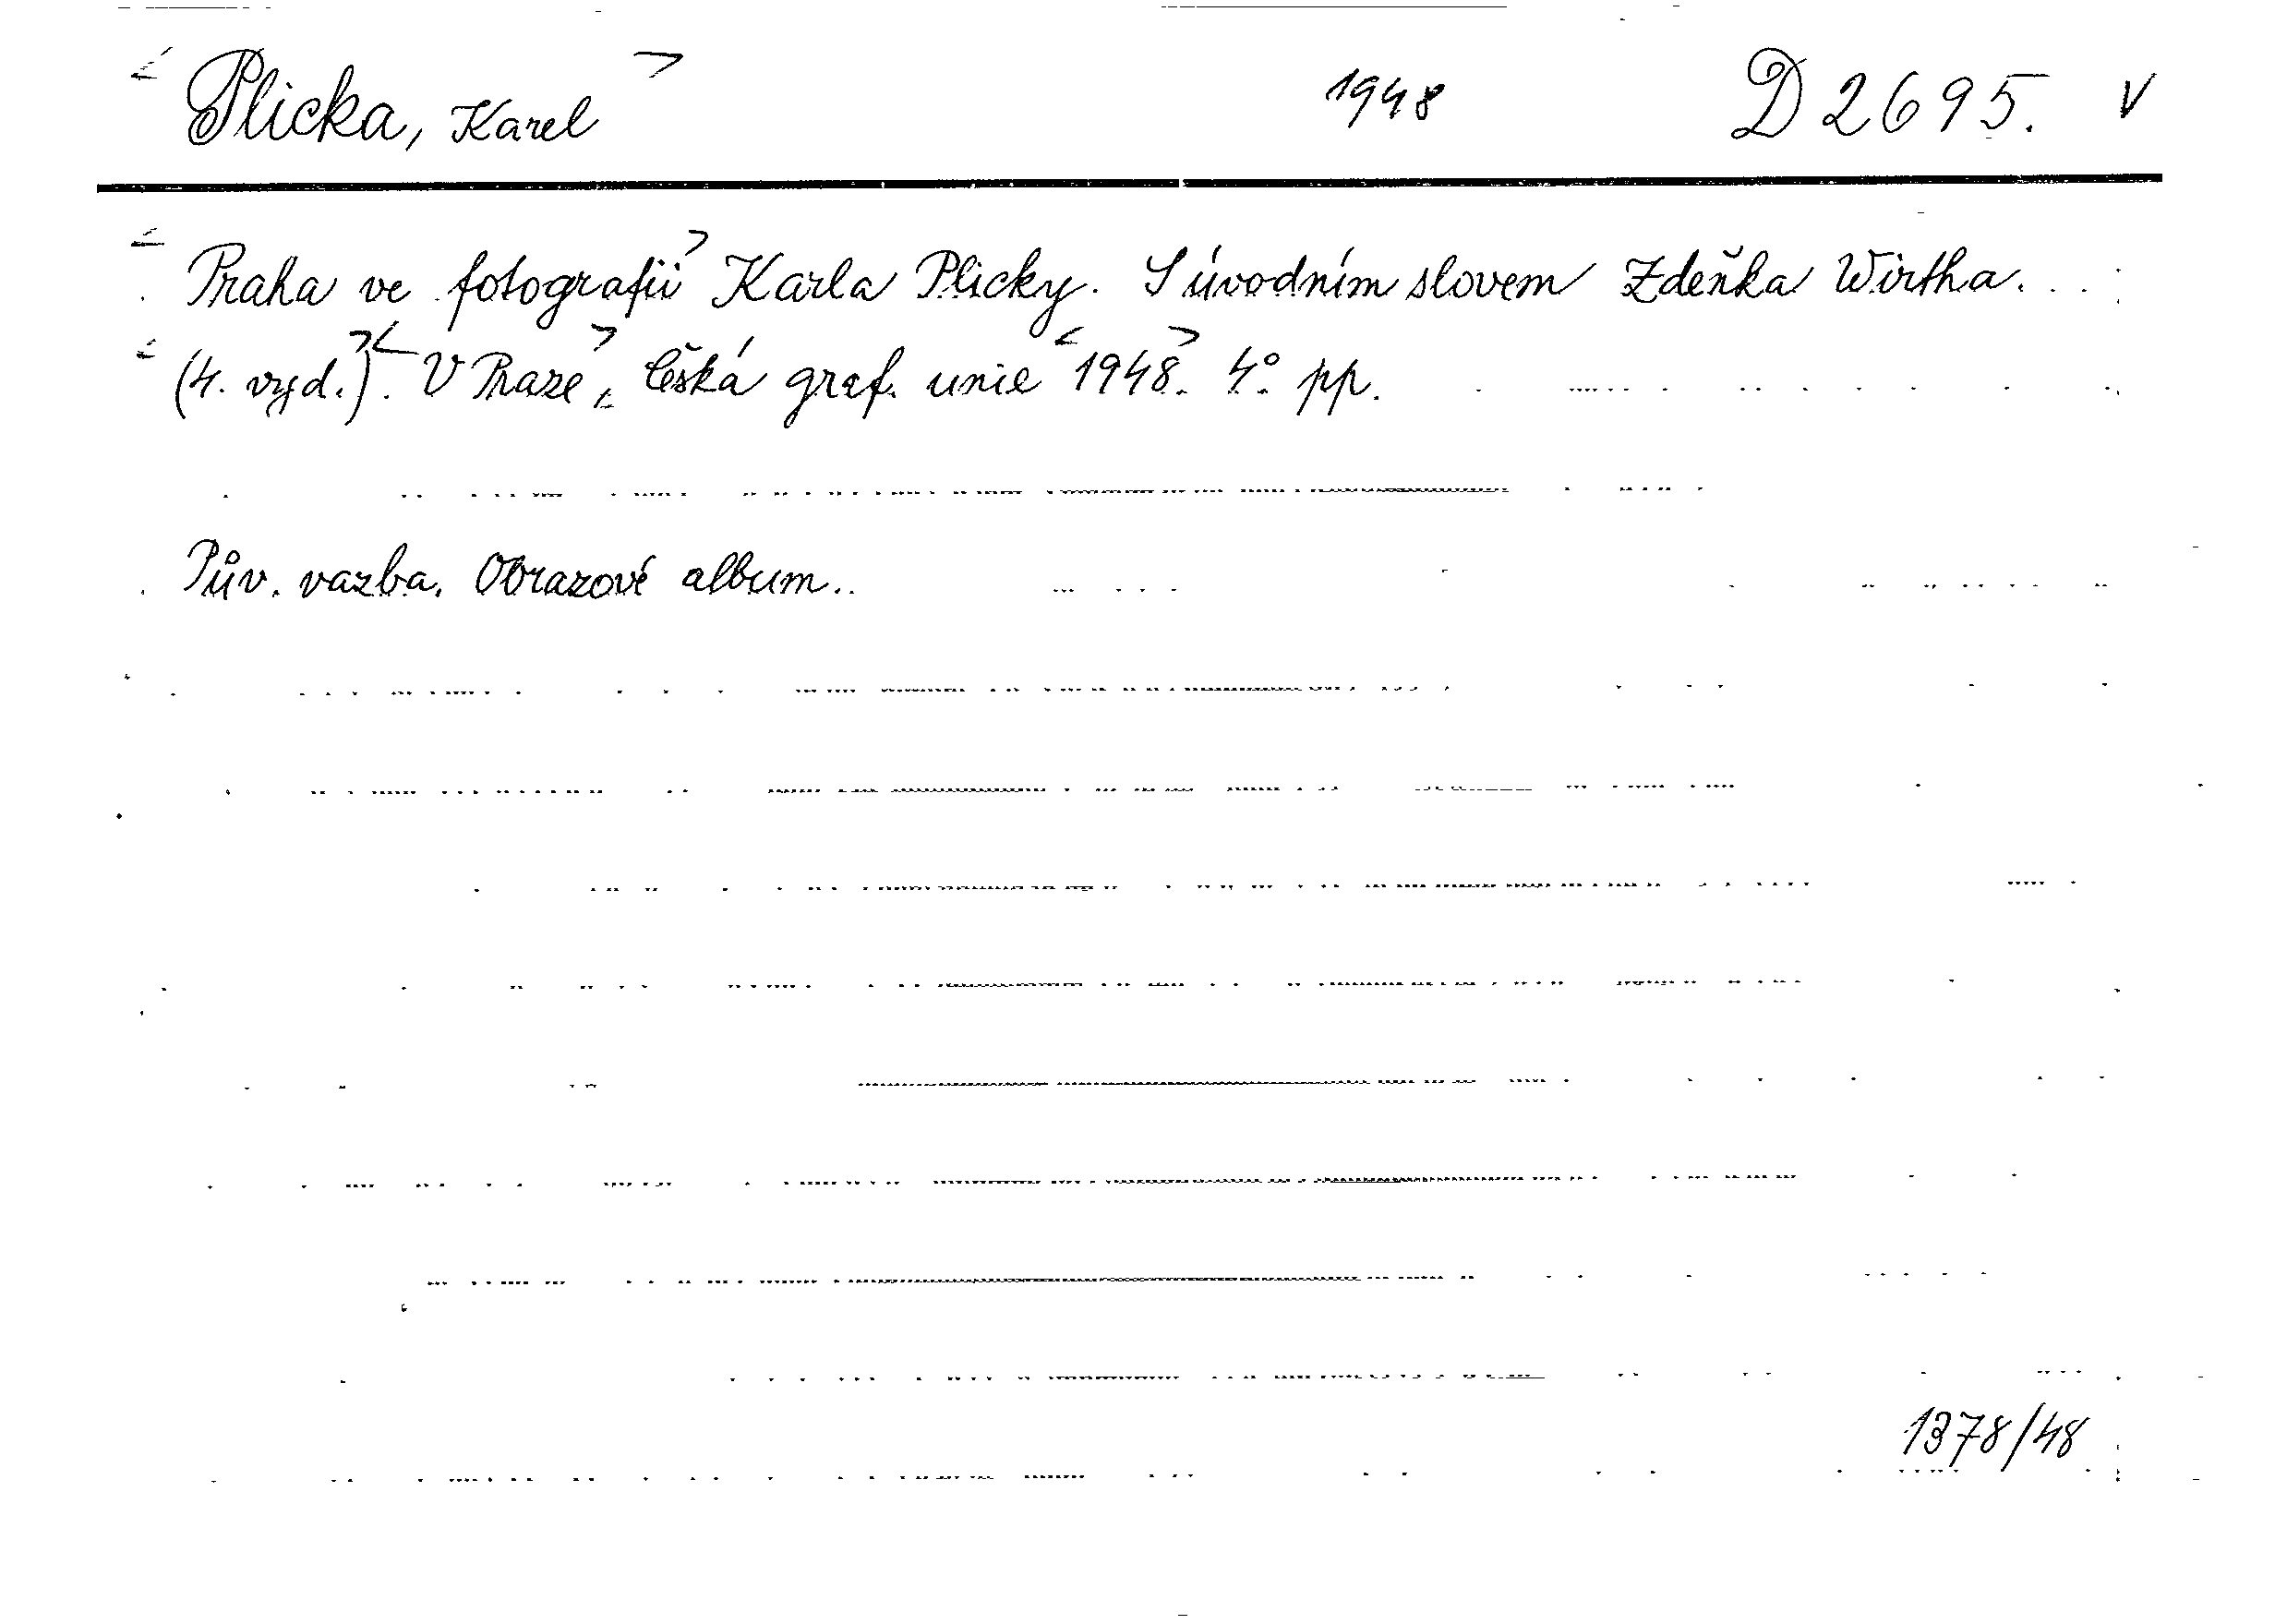 <Plicka, Karel> 1948 D 2695. V
<Praha ve fotografii> Karla Plicky. S úvodním slovem Zdeňka Wirtha...
<(4. vyd.)>. <V Praze>, Česká graf. unie <1948>. 4° pp.
Pův. vazba. Obrazové album.
1378/48